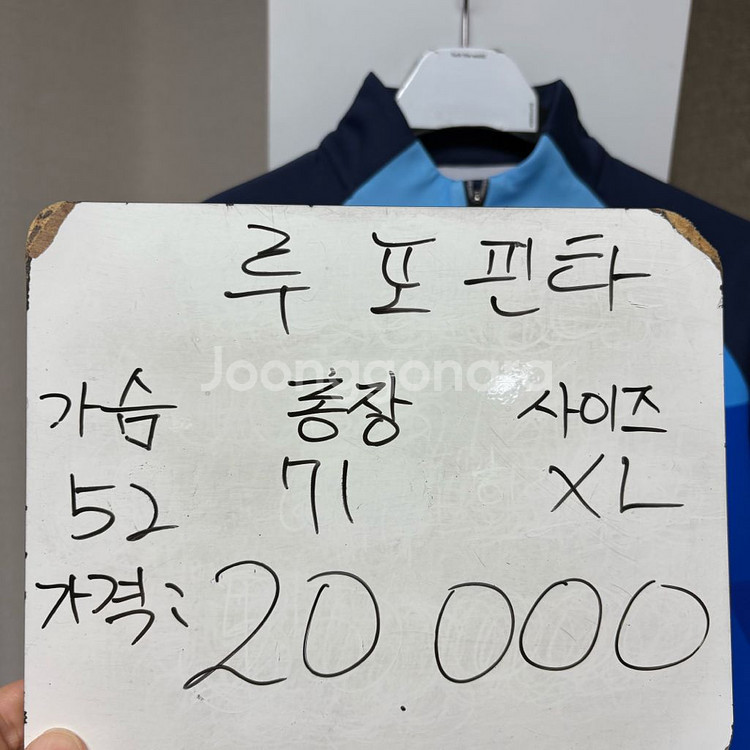 루 포 핀타
Joonggonara
가슴 총장 사이즈
52 71 XL
가격: 20 000